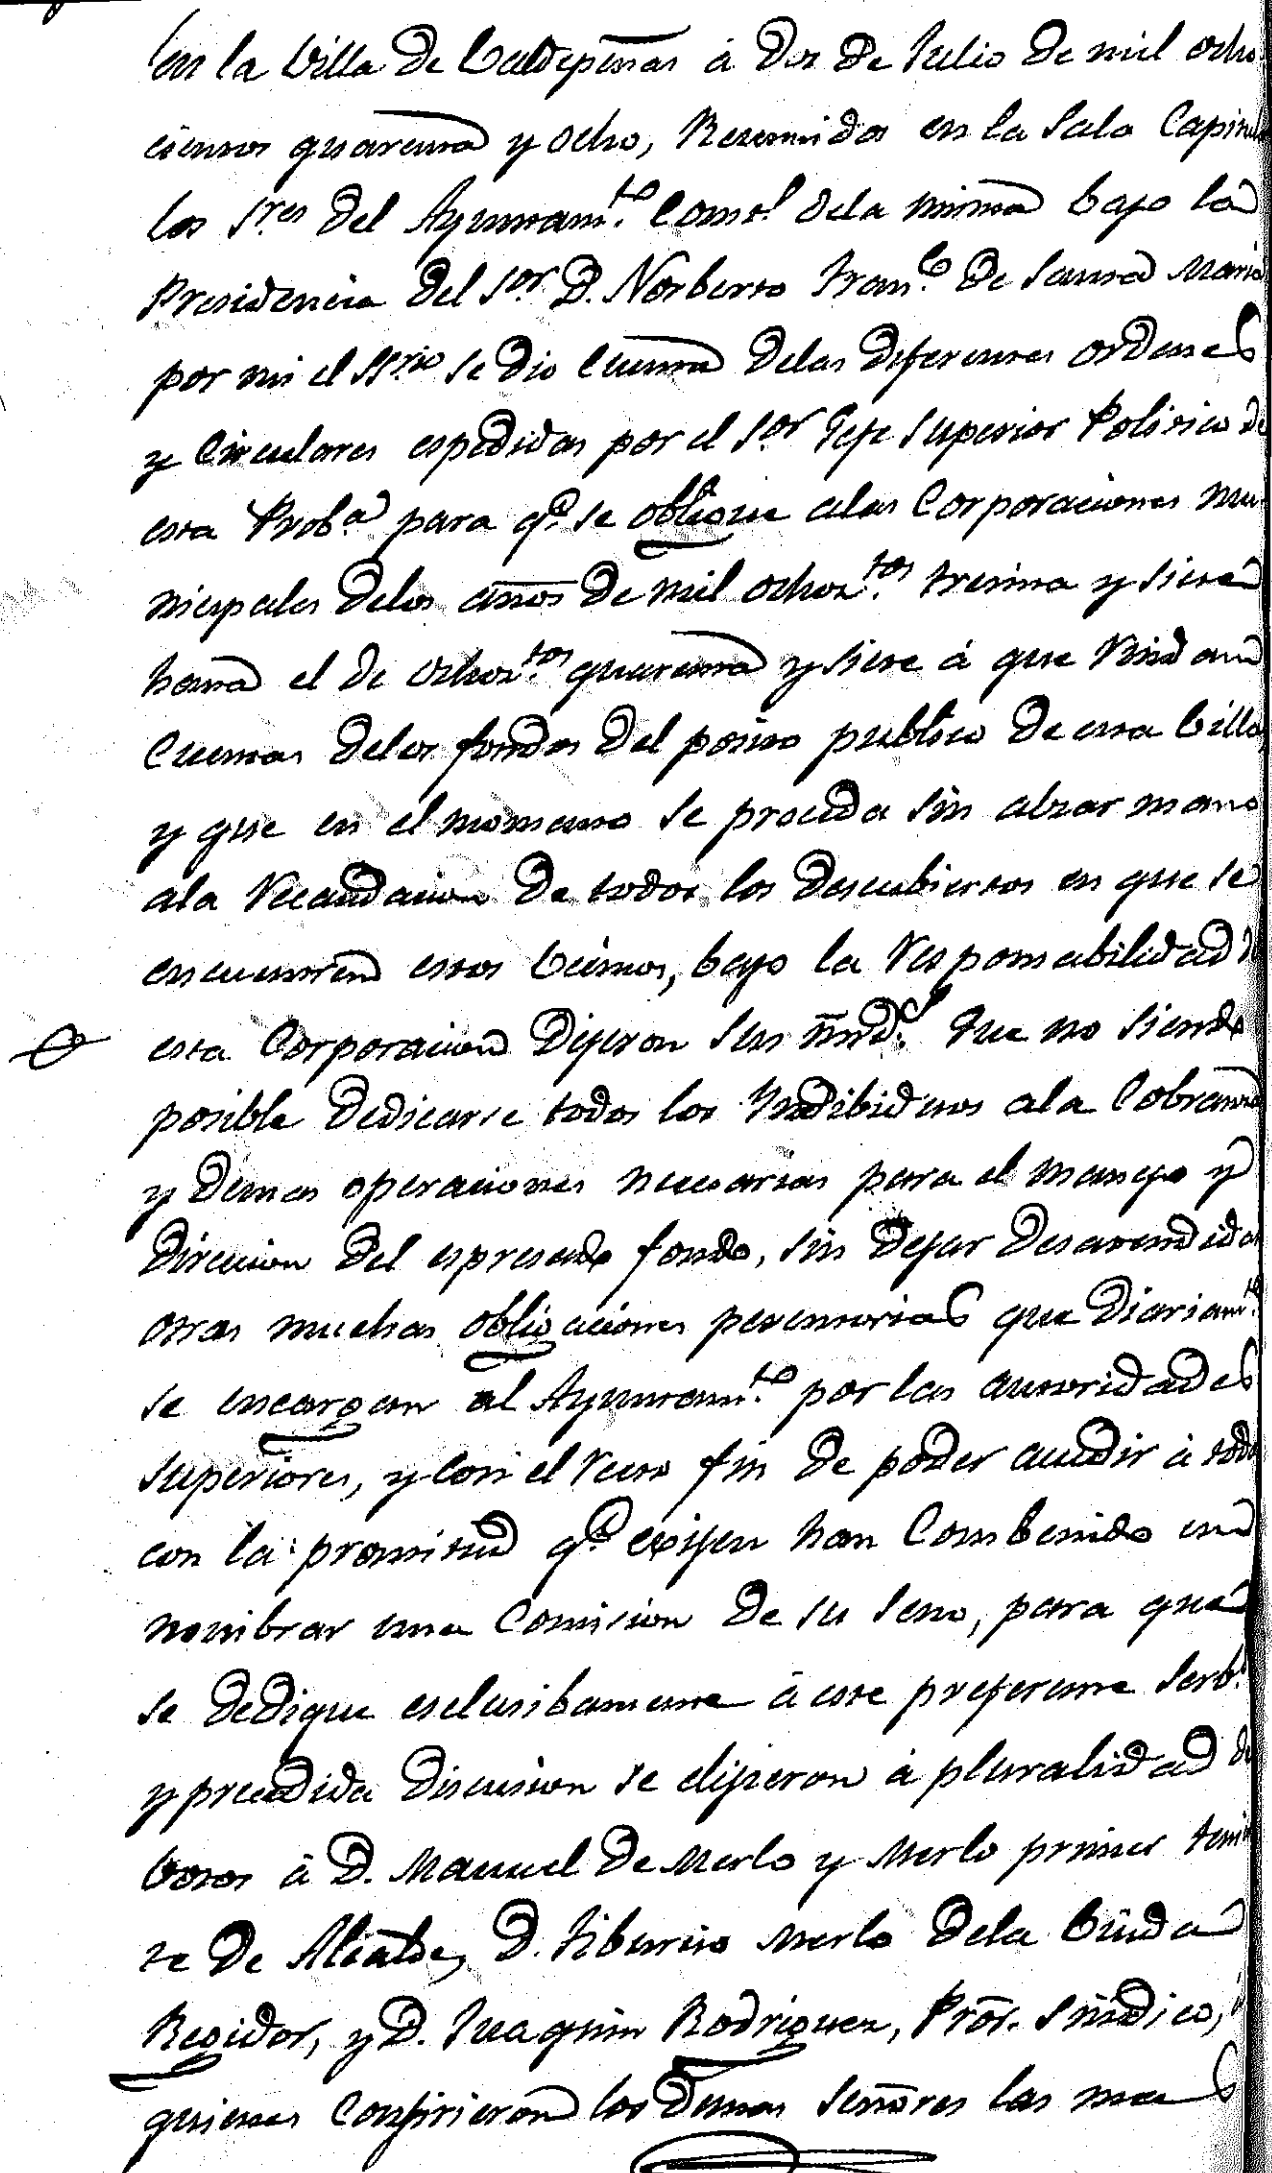 En la Villa de Baldepeñas á dos de Julio de mil ocho
cientos quarenta y ocho, Reunidos en la Sala Capitul
los S.res del Ayuntam.to Const.l dela misma bajo la
Presidencia del S.or D. Norberto Fran.co de Santa Maria
por mi el Ss.rio se dio Cuenta delas diferentes ordenes
y Circulares espedidas por el S.or Gefe Superior Politico de
esta Prob.a para q.e se obligue alas Corporaciones mu
nicipales delos años de mil ochoz.tos treinta y siete
hasta el de ochoz.tos quarenta y siete á que Rindan
Cuentas delos fondos del posito publico de esta Villa
y que en el momento se proceda sin alzar mano
ala Recaudacion de todos los descubiertos en que se
encuentren estos becinos, bajo la Responsabilidad de
esta Corporacion Dijeron Sus mrd.s Que no siendo
posible dedicarse todos los Yndibiduos ala Cobranza
y demas operaciones necesarias para el manejo y
Direccion del espresado fondo, sin dejar desatendidas
otras muchas obligaciones perentorias que diariam.te
se encargan al Ayuntam.to por las autoridades
Superiores, y con el Recto fin de poder acudir á todo
con la prontitud q.e exijen han Combenido en
nombrar una Comision de su seno, para que
se dedique esclusibamente á este preferente Serb.o
y precedida discusion se elijieron á pluralidad de
botos á D. Manuel de Merlo y Merlo primer tenien
te de Alcalde, D. Tiburcio Merlo dela Biuda
Regidor, y D. Juaquin Rodriguez, Pror. Sindico, á
quienes Confirieron los demas Señores las mas